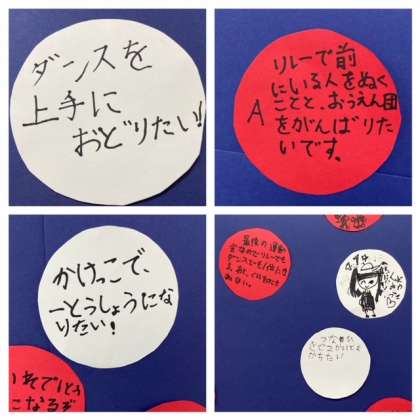 ダンスを
上手に
おどりたい!
リレーで前
にいる人をぬく
ことと、おうえん団
をがんばりた
いです。
A
かけっこで、
一とうしょうにな
りたい!
最後の運動
会なのでリレーでも
ダンスでも
つな
かちたい!
いそで
こなるぞ